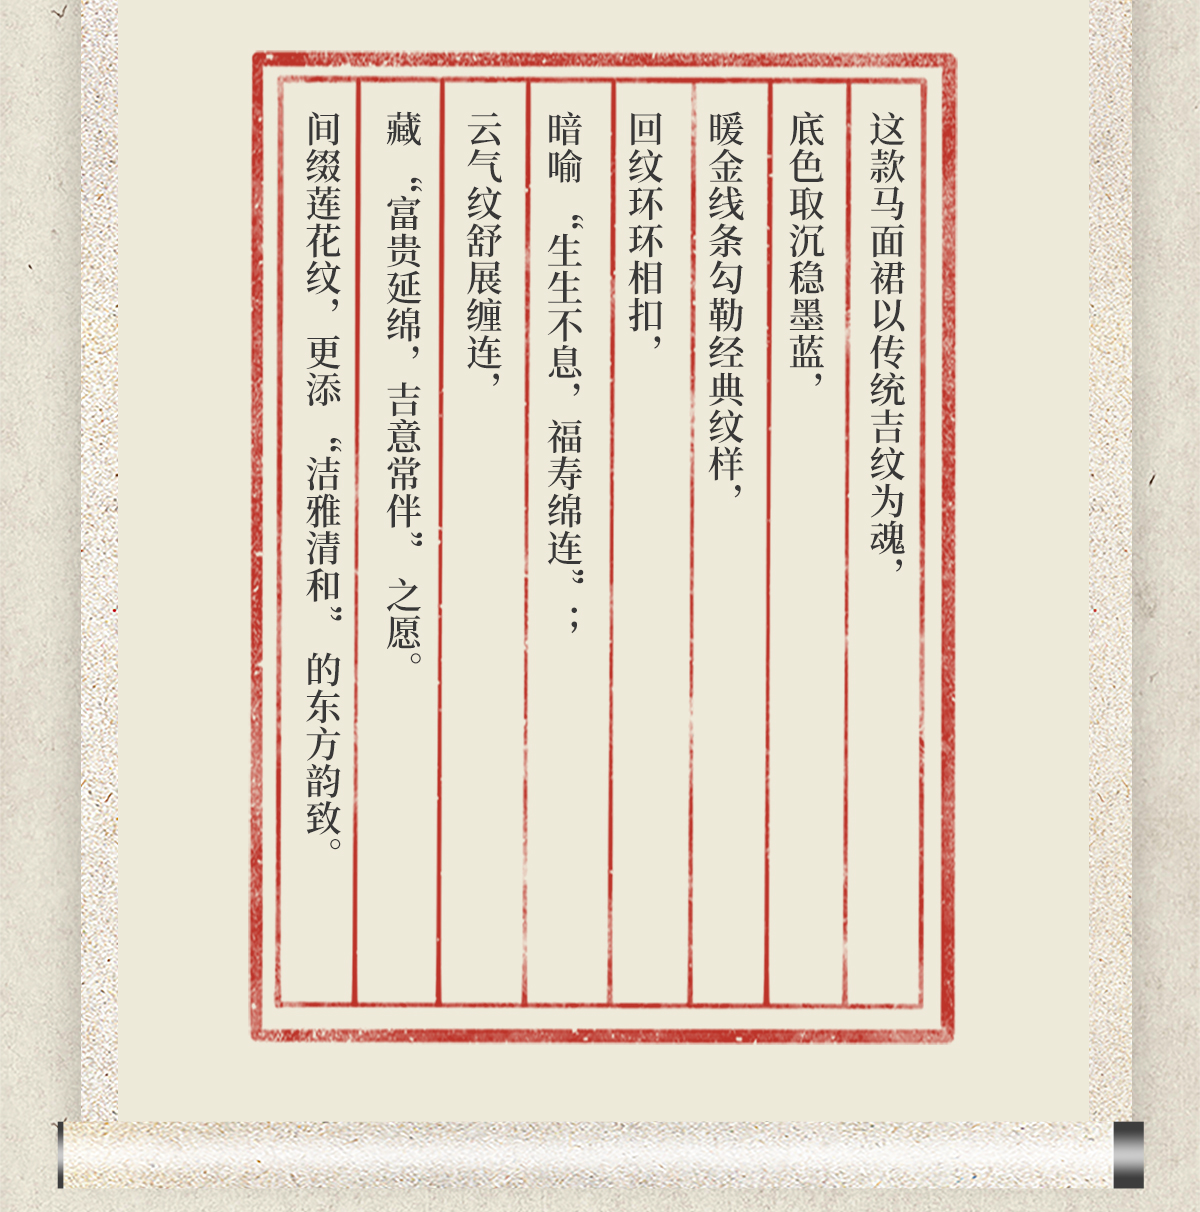 这款马面裙以传统吉纹为魂，
底色取沉稳墨蓝，
暖金线条勾勒经典纹样，
回纹环环相扣，
暗喻“生生不息，福寿绵连”；
云气纹舒展缠连，
藏“富贵延绵，吉意常伴”之愿。
间缀莲花纹，更添“洁雅清和”的东方韵致。